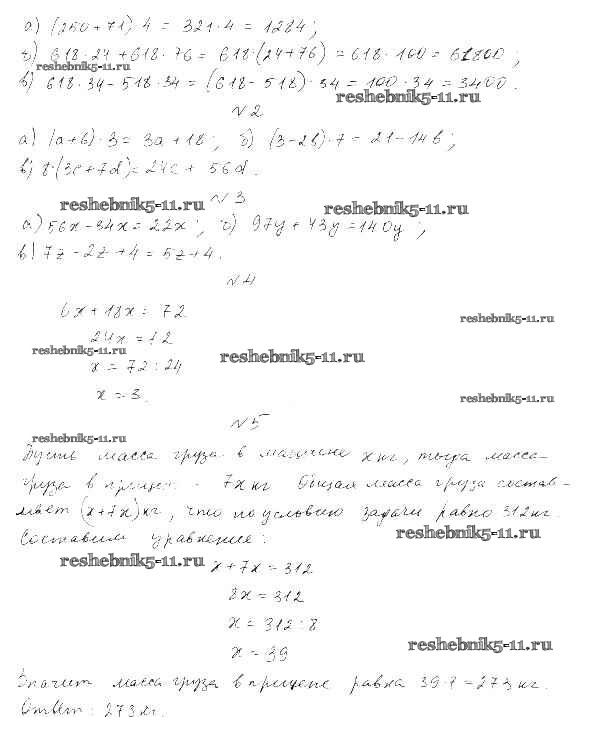 а) (250 + 71) · 4 = 321 · 4 = 1284;
б) 618 · 24 + 618 · 76 = 618 · (24 + 76) = 618 · 100 = 61800;
reshebnik5-11.ru
в) 618 · 34 - 518 · 34 = (618 - 518) · 34 = 100 · 34 = 3400.
reshebnik5-11.ru
№ 2
а) (а + 6) · 3 = 3а + 18; б) (3 - 2b) · 7 = 21 - 14b;
в) 8 · (3c + 7d) = 24c + 56d.
reshebnik5-11.ru № 3 reshebnik5-11.ru
а) 56x - 34x = 22x; б) 97y + 43y = 140y;
в) 7z - 2z + 4 = 5z + 4.
№ 4
6x + 18x = 72
reshebnik5-11.ru
24x = 72
reshebnik5-11.ru
reshebnik5-11.ru
x = 72 : 24
x = 3.
reshebnik5-11.ru
№ 5
reshebnik5-11.ru
Пусть масса груза в машине x кг, тогда масса
груза в прицепе - 7x кг Общая масса груза состав-
ляет (x + 7x) кг, что по условию задачи равно 312 кг.
Составим уравнение:
reshebnik5-11.ru
reshebnik5-11.ru
x + 7x = 312
8x = 312
x = 312 : 8
reshebnik5-11.ru
x = 39
Значит масса груза в прицепе равна 39 · 7 = 273 кг.
Ответ: 273 кг.